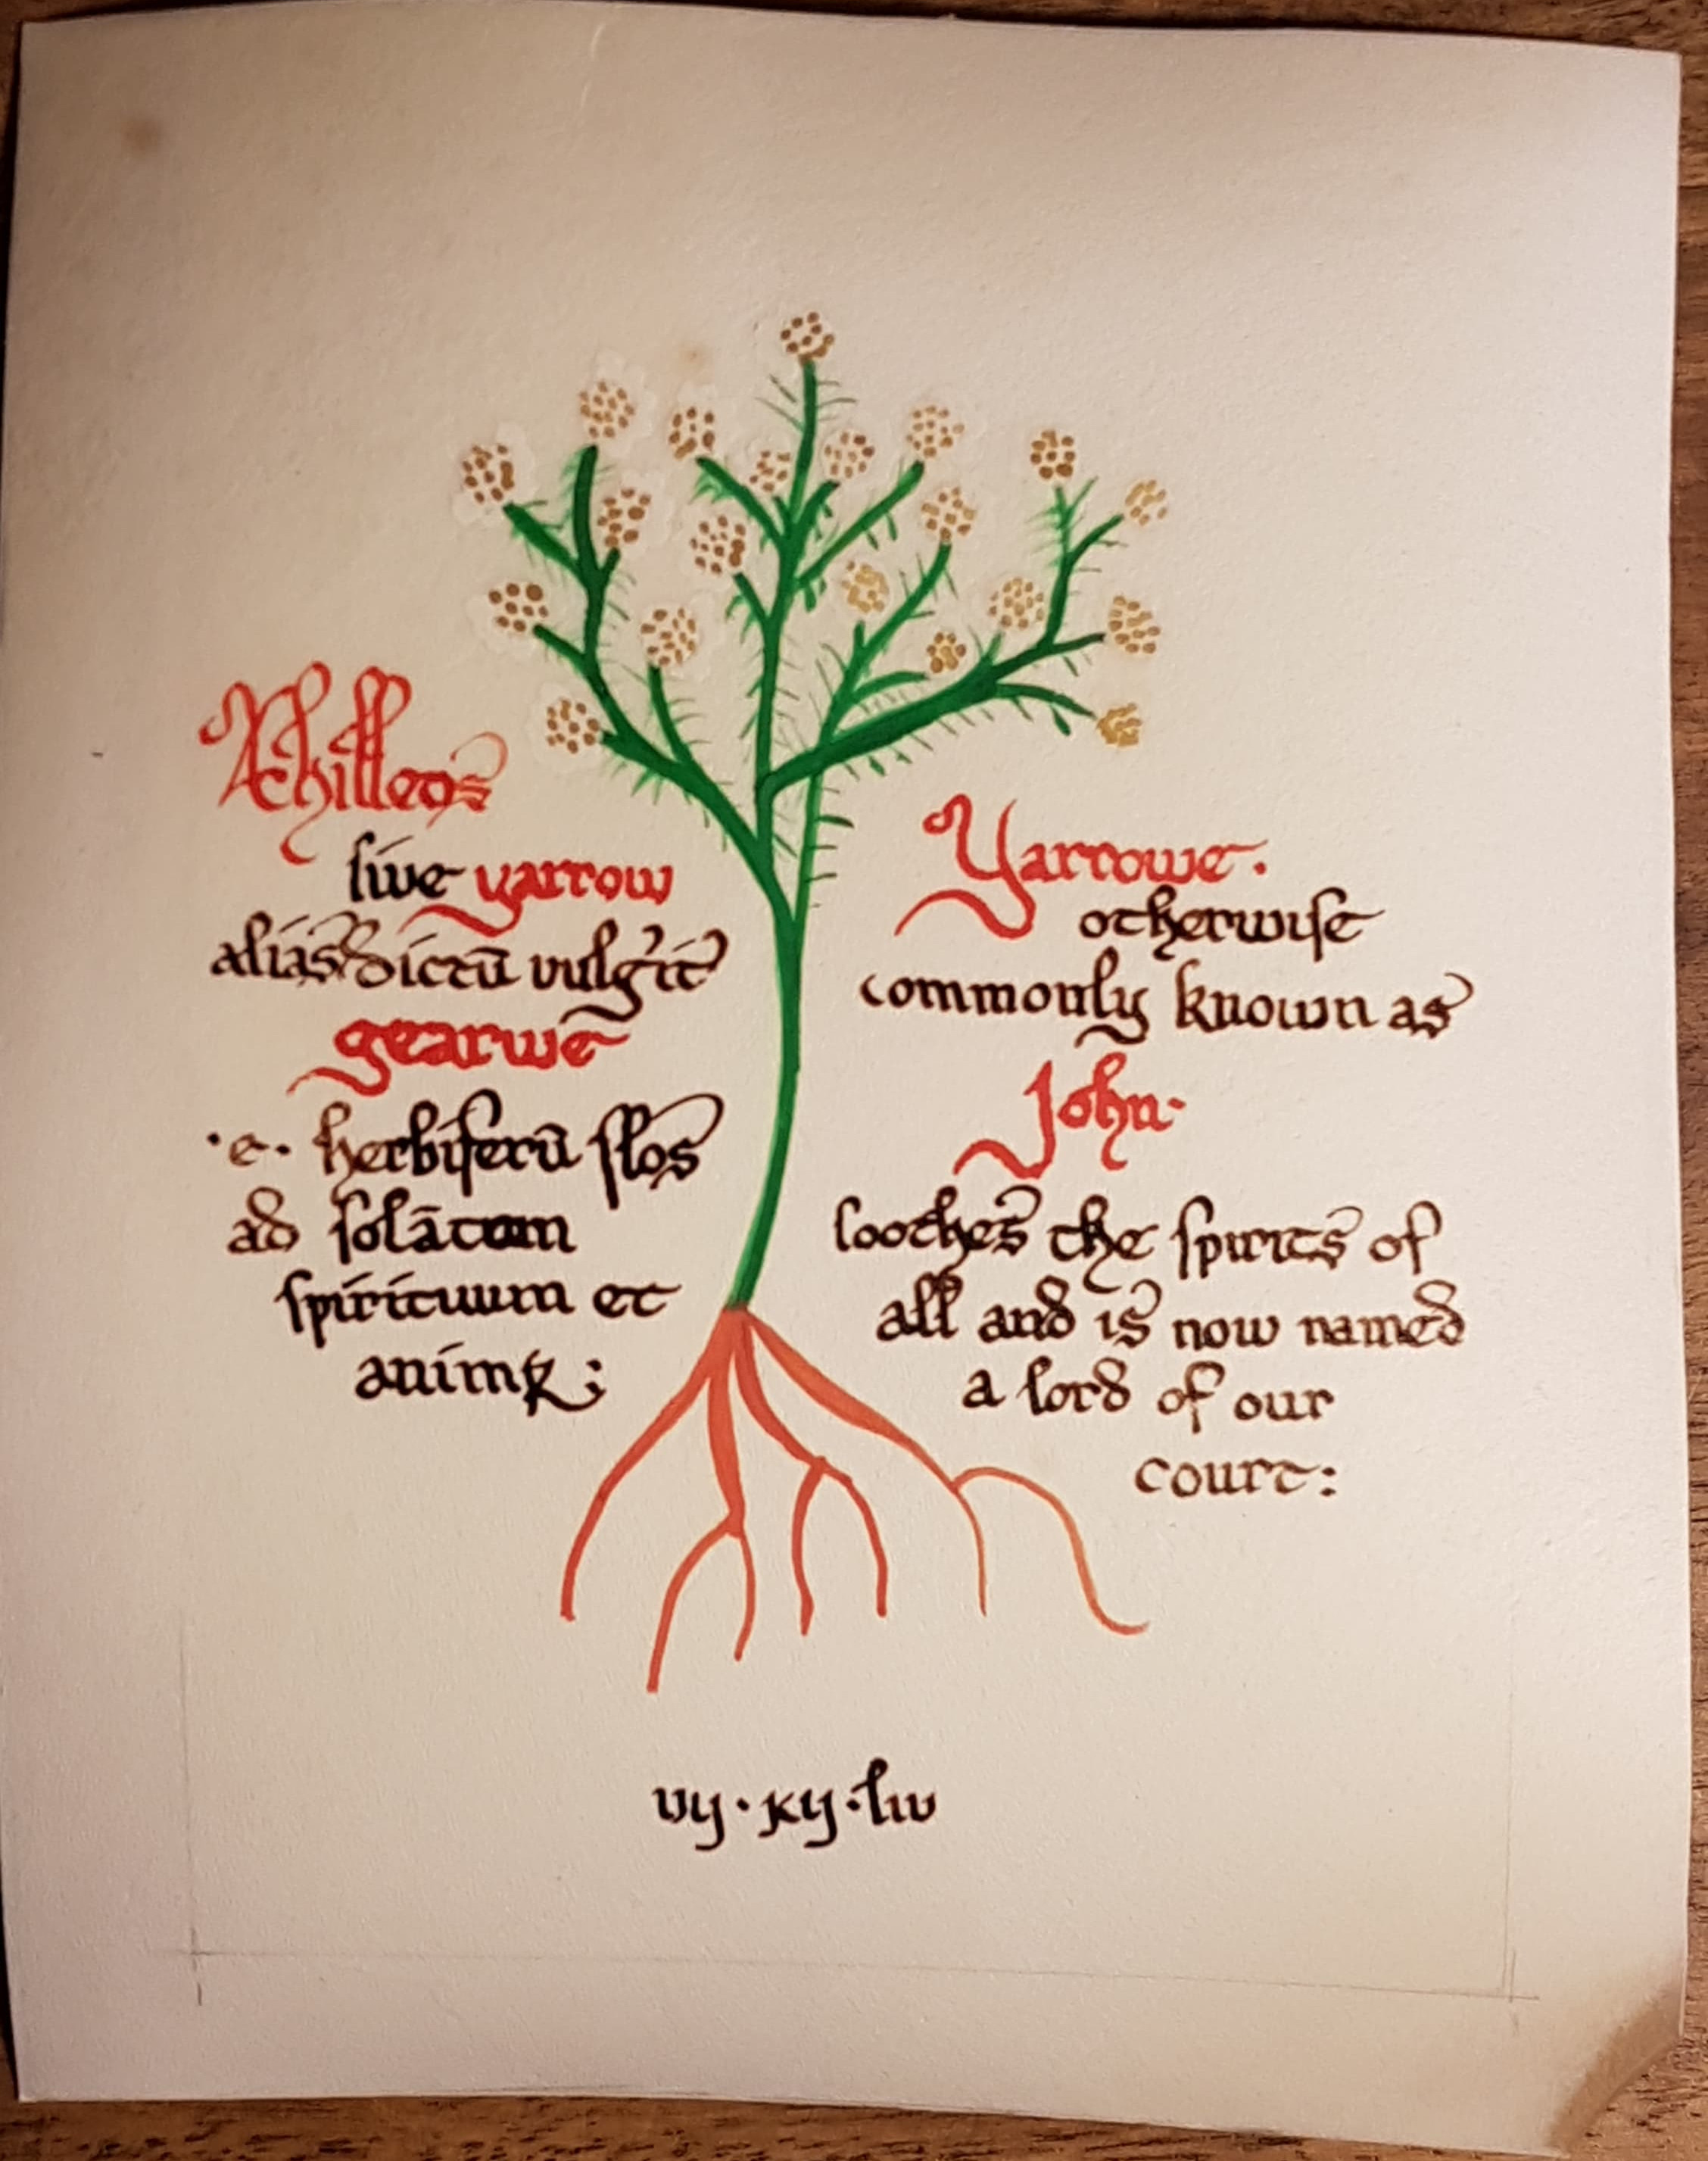 Achilleos
sive yarrow
alias dictū vulg'it'
gearwe
·e· herbiferū flos
ad solātom
spirituum et
animꝝ;
Yarrowe.
otherwise
commonly known as
John.
soothes the spirits of
all and is now named
a lord of our
court:
vij · xij · liv